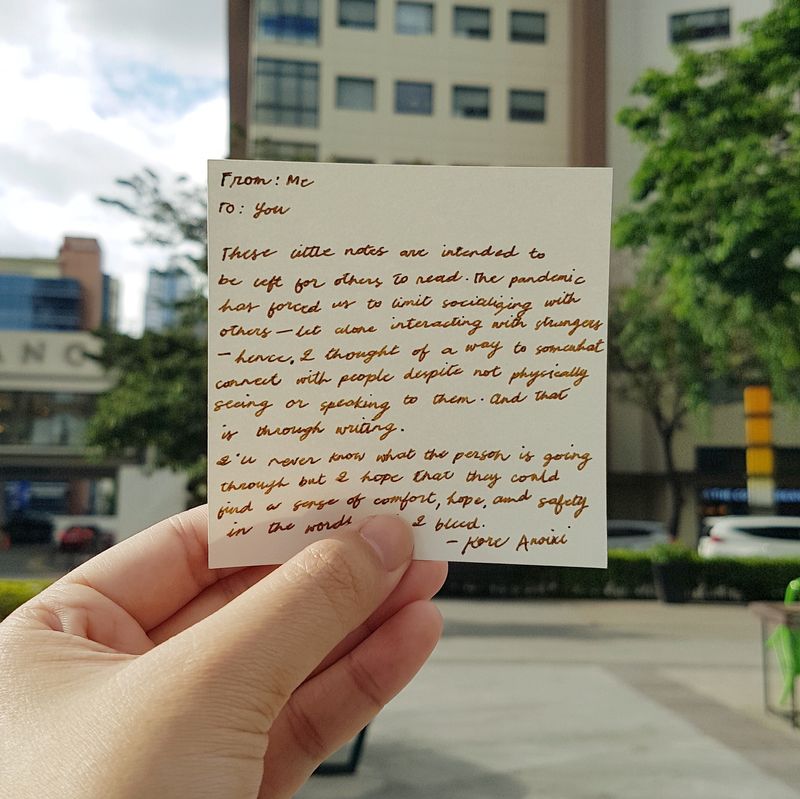 From: Me
To: You
These little notes are intended to
be left for others to read. The pandemic
has forced us to limit socializing with
others — let alone interacting with strangers
— hence, I thought of a way to somewhat
connect with people despite not physically
seeing or speaking to them. And that
is through writing.
I'll never know what the person is going
through but I hope that they could
find a sense of comfort, hope, and safety
in the words I bleed.
- Kore Anoixi
ANO